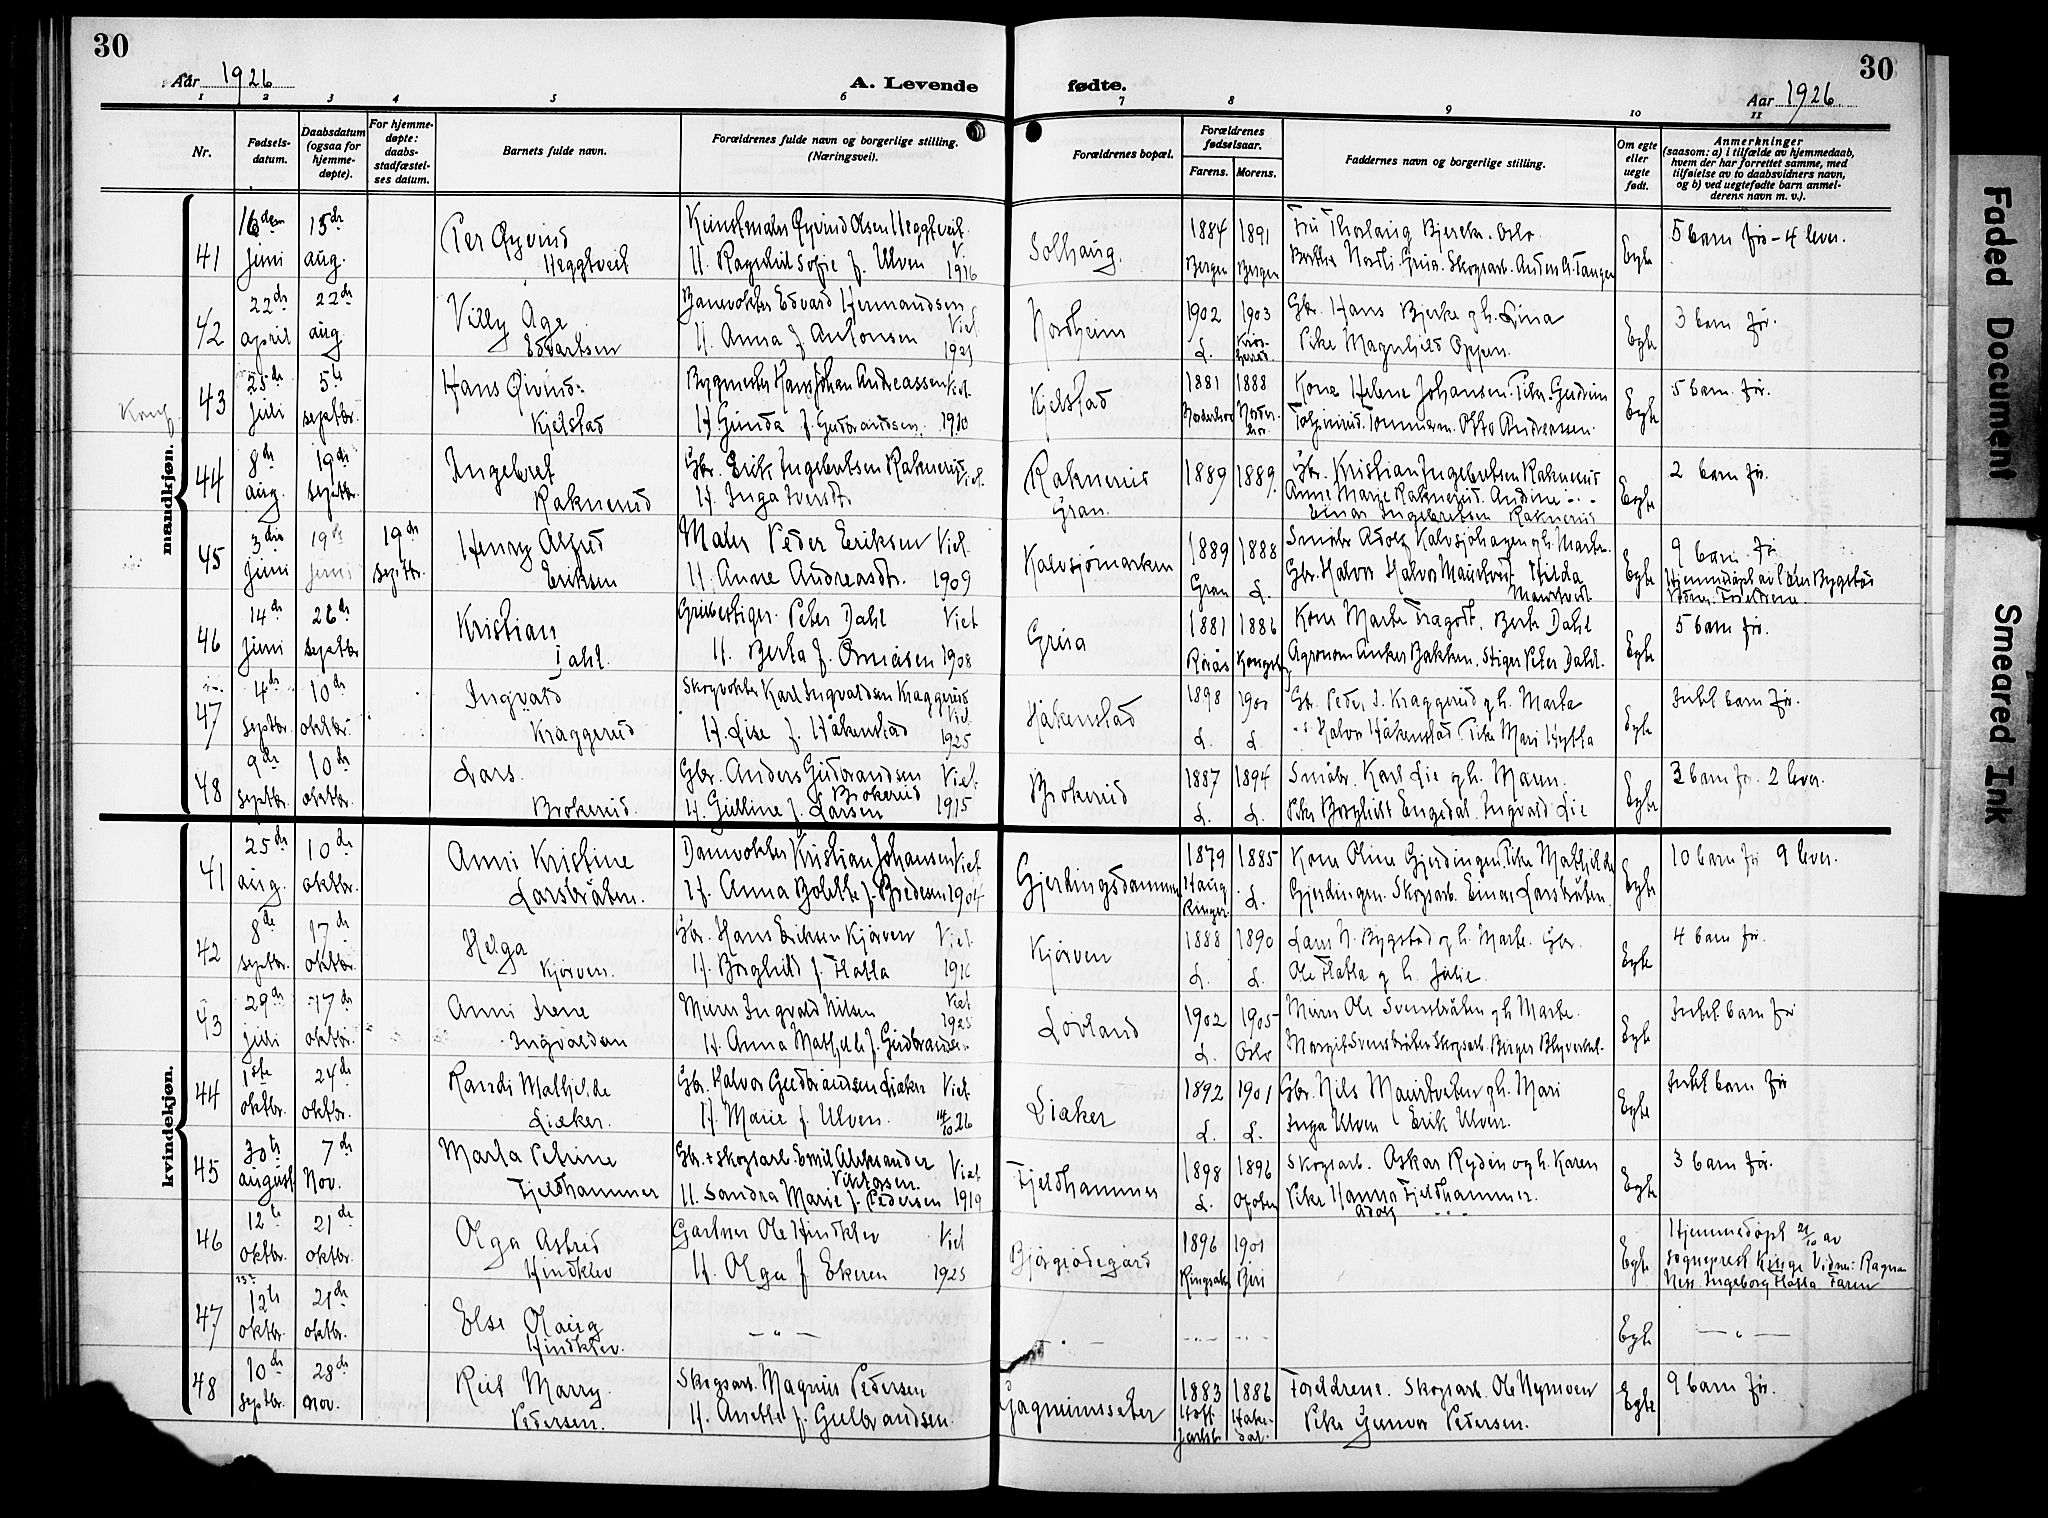 30
30
Aar 1926
A. Levende fødte.
Aar 1926
1 2 3 4 5 6 7 8 9 10 11
Nr.
Fødsels-
datum.
Daabsdatum
(ogsaa for
hjemme-
døpte).
For hjemme-
døpte:
daabs-
stadfæstel-
ses datum.
Barnets fulde navn.
Forældrenes fulde navn og borgerlige stilling.
(Næringsvei).
Forældrenes bopæl.
Forældrenes
fødselsaar.
Farens. Morens.
Faddernes navn og borgerlige stilling.
Om egte
eller
uegte
født.
Anmerkninger
(saasom: a) i tilfælde av hjemmedaab,
hvem der har forrettet samme, med
tilføielse av to daabsvidners navn,
og b) ved uegtefødte barn anmel-
derens navn m. v.).
mandkjøn.
41 16de juni 15de aug. Per Øyvind Heggtveit
Kunstmaler Øyvind Olsen Heggtveit.
H. Ragnhil Sofie f. Ulven V. 1916
Solhaug. 1884 Bergen 1891 Bergen
Fru Thorlaug Bjercke. Oslo
Nordli. Grua. Skogsarb. Anders A. Tangen
Egte 5 barn før - 4 lever.
42 22de april 22de aug. Villy Åge Edvartsen
Banevokter Edvard Hermandsen
H. Anna f. Antonsen Viet 1921
Nordheim 1902 L. 1903
Gbr. Hans Bjerke og h. Lina
Pike Magnhild Oppen.
Egte 3 barn før.
Konf.
43 25de juli 5te septbr. Hans Øivind Kjelstad
Bygmester Hans Johan Andreassen Viet.
H. Gunda f. Gudbrandsen. 1910
Kjelstad 1881 Norderhov 1888 Norderhov.
Kone Helene Johansen. Pike. Gudrun
Tømmerm. Otto Andreassen.
Egte 5 barn før.
44 8de aug. 19de septbr. Ingebret Raknerud
Gbr. Erik Ingebretsen Raknerud Viet.
H. Inga Iversdtr.
Raknerud Gran. 1889 1889.
Gbr. Kristian Ingebretsen Raknerud
Anne Marie Raknerud. Andine - " -
Einar Ingebretsen Raknerud
Egte 2 barn før.
45 3die juni 19de juni 19de septbr. Henry Alfred Eriksen
Maler Peder Eriksen Viet.
H. Anne Andreasdtr. 1909
Kalvsjømarken 1889 Gran 1888 L.
Småbr. Adolf Kalvsjøhagen og h. Marte.
Gbr. Halvor Halvor Maurtvedt Hilda Maurtvedt.
Egte 9 barn før
Hjemmedøpt av Lars Bygstad
Vidner. Foreldrene.
46 14de juni 26de septbr Kristian Dahl.
Grubestiger. Peter Dahl Viet
H. Berta f. Omåsen 1908
Grua 1881 Røraas 1886 Kongsberg
Kone Marte Fragodt. Berte Dahl
Agronom Anker Bakken. Stiger Peter Dahl.
Egte 5 barn før.
47 4de septbr. 10de oktbr. Ingvald Kraggerud
Skogvokter Karl Ingvaldsen Kraggerud
H. Lise f. Håkenstad Viet 1925
Håkenstad 1898 L. 1900 L.
Gbr. Peder I. Kraggerud og h. Marte
Halvor Håkenstad Pike Mari Hytta
Egte Intet barn før.
48 9de septbr. 10de oktbr. Lars. Brokerud.
Gbr. Anders Gudbrandsen Brokerud Viet.
H. Gulline f. Larsen 1915
Brokerud 1887 L. 1894 L.
Småbr. Karl Lie og h. Maren.
Pike Borghildt Engedal. Ingvald Lie
Egte 3 barn før. 2 lever.
kvindekjøn.
41 25de aug. 10de oktbr. Anni Kristine Larsbråten.
Damvokter Kristian Johansen Viet
H. Anna Bolette f. Bredesen 1904
Gjerdingsdammen 1879 Haug Ringer. 1885 L.
Kone Oline Gjerdingen Pike Mathilde
Gjerdingen. Skogsarb. Einar Larsbråten.
Egte 10 barn før 9 lever.
42 8de septbr. 17de oktbr. Helga Kjørven.
Gbr. Hans Eriksen Kjørven Viet.
H. Borghild f. Flatla 1916
Kjørven 1888 L. 1890 L.
Lars N. Bygstad og h. Marte. Gbr.
Ole Flatla og h. Julie.
Egte 4 barn før.
43 29de juli 17de oktbr. Anni Irene Ingvaldsen
Murer Ingvald Nilsen Viet 1925
H. Anna Mathilde f. Gudbrandsen
Lovland 1902 L. 1905 Oslo
Murer Ole Svensbråten og h Marte.
Margit Svensbråten Skogsarb. Birger Blyverket.
Egte Intet barn før
44 1ste oktbr. 24de oktbr. Randi Mathilde Liaker.
Gbr. Halvor Gudbrandsen Liaker Viet
H. Marie f. Ulven. 14/10 26
Liaker 1892 L. 1901 L.
Gbr. Nils Maurtveten og h. Mari
Inga Ulven Erik Ulven.
Egte Intet barn før
45 30te august 7de Nov. Marta Petrine Fjeldhammer
Gbr. + skogsarb. Emil Aleksander Viktorsen. Viet
H. Sandra Marie f. Pedersen 1919
Fjeldhammer 1898 L. 1896 Ofoten
Skogsarb. Oskar Ryden og h. Karen
Pike Hanna Fjeldhammer.
Adolf - " -
Egte 3 barn før.
46 12te oktbr. 21de oktbr. Olga Astrid Hindklev
Gartner Ole Hindklev Viet
H. Olga f. Ekeren 1925
Bjørgiødegård 1896 Ringsaker 1901 Biri
Egte Hjemmedøpt 21/10 av
Sogneprest Kinge Vidner: Ragna
Ness. Ingeborg Flatla Faren
47 13de 12te oktbr. 21de oktbr. Else Olaug Hindklev.
— " — — " — - " - - " -
Egte — " —
48 10de septbr. 28de nov. Rut Marry Pedersen.
Skogsarb. Magnus Pedersen
H. Anette f. Gulbrandsen.
Gagnumsseter 1883 Hoff Jarlsb. 1886 Hakedal.
Foreldrene. Skogsarb. Ole Nymoen
Pike Gunvor Pedersen.
Egte 9 barn før.
Faded Document
Smeared Ink